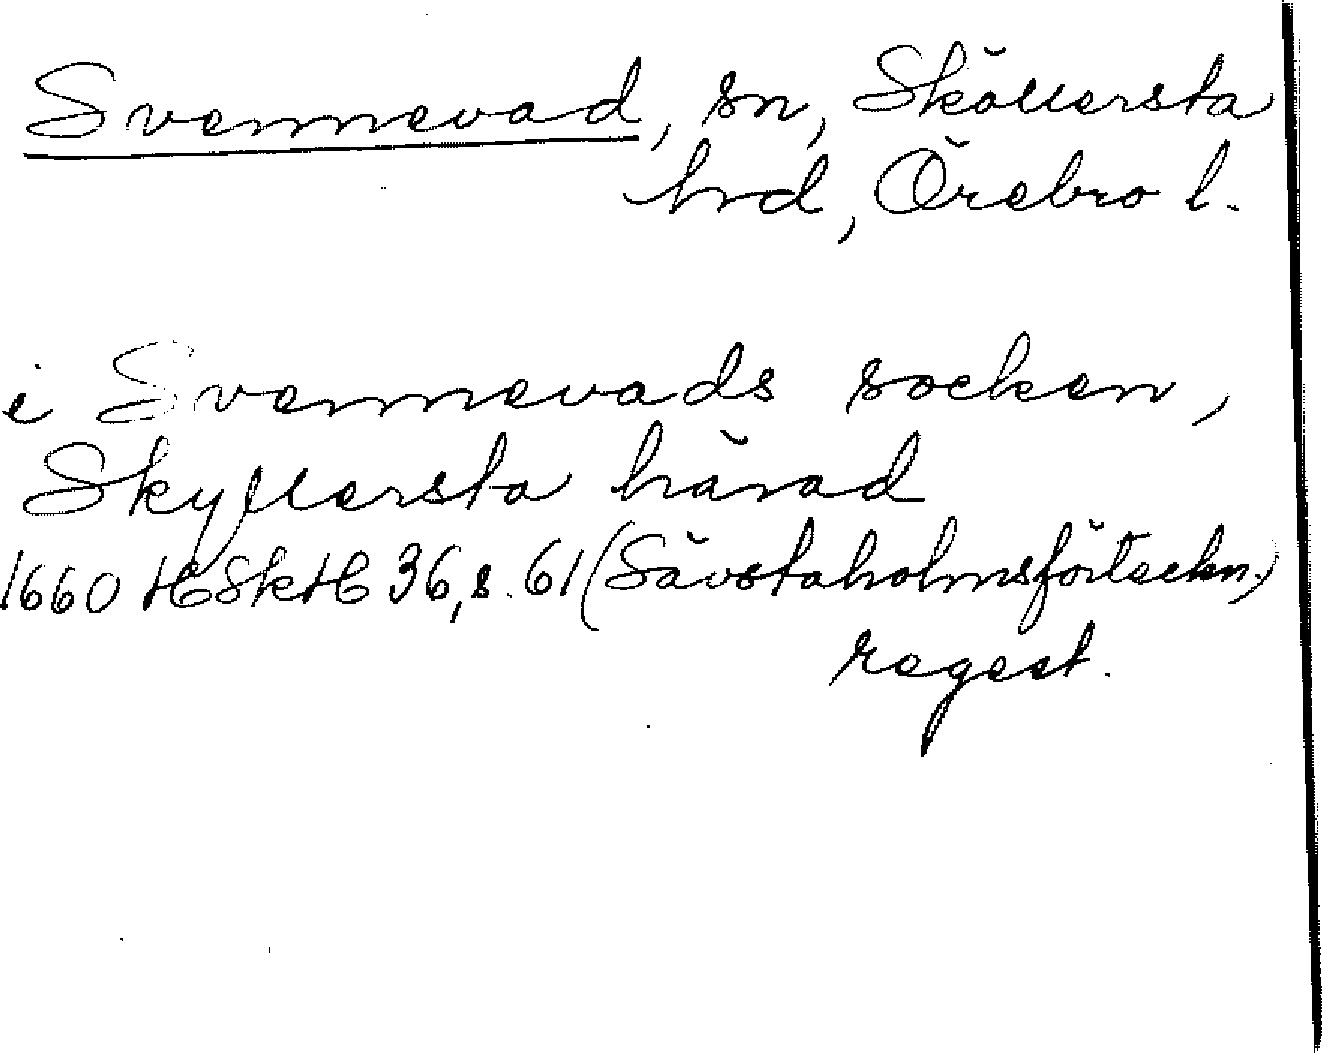 Svennevad, sn, Sköllersta
hrd, Örebro l.
i Svennevads socken,
Skyllersta härad
1660 HSkH 36, s. 61 (Sävstaholmsförteckn.)
regest.